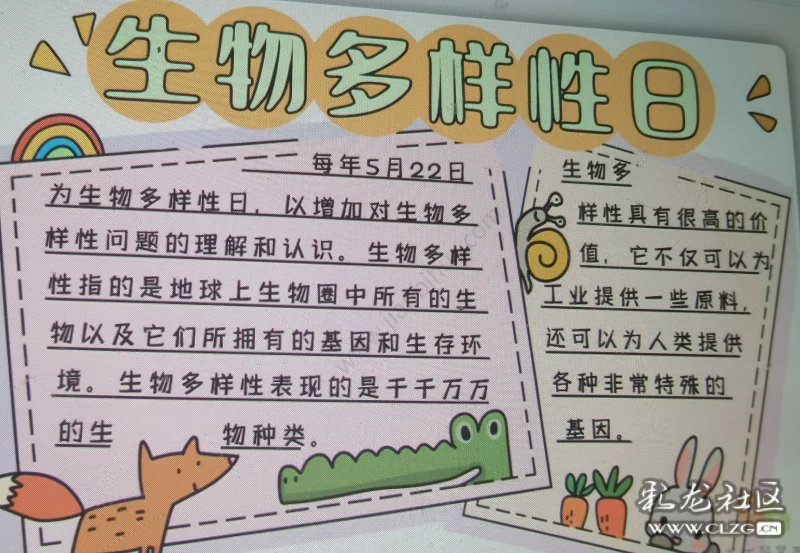 生物多样性日
每年5月22日
为生物多样性日，以增加对生物多
样性问题的理解和认识。生物多样
性指的是地球上生物圈中所有的生
物以及它们所拥有的基因和生存环
境。生物多样性表现的是千千万万
的生物种类。
生物多
样性具有很高的价
值，它不仅可以为
工业提供一些原料，
还可以为人类提供
各种非常特殊的
基因。
彩龙社区
WWW.CLZG.CN